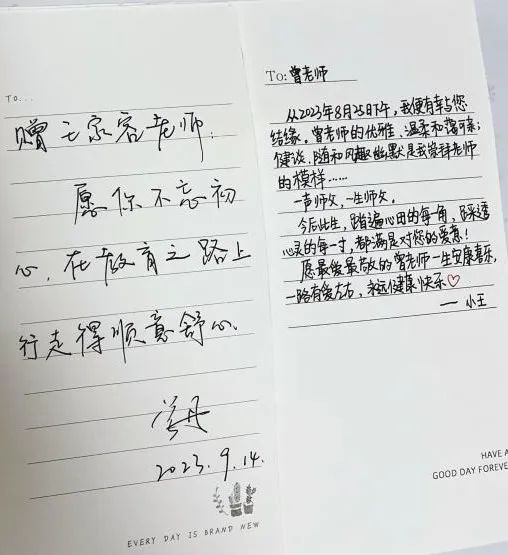 TO...
赠王家容老师:
愿你不忘初
心,在教育之路上
行走得顺意舒心.
2023.9.14.
EVERY DAY IS BRAND NEW
To:曾老师
从2023年8月25日下午,我便有幸与您
结缘。曾老师的优雅、温柔和蔼可亲;
健谈、随和风趣幽默是我崇拜老师
的模样……
一声师父,一生师父。
今后此生,踏遍心田的每一角,踩透
心灵的每一寸,都满是对您的爱意!
愿最爱最敬的曾老师一生安康喜乐,
一路有爱左右,永远健康快乐♡
——小王
HAVE A
GOOD DAY FOREVE